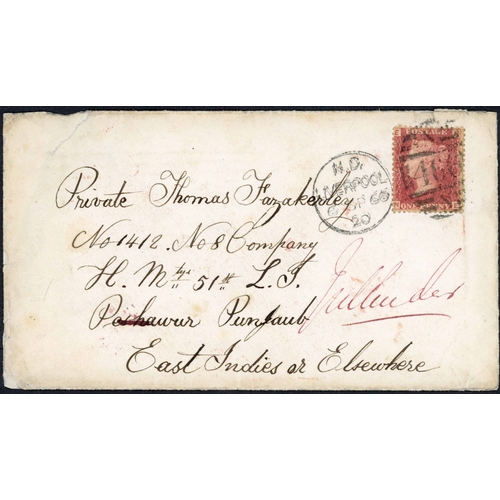 N.D.
LIVERPOOL
66
20
POSTAGE
ONE PENNY
Private Thomas Fazakerley
No 1412 No 8 Company
H. Mtys 51st L. I.
Peshawur Punjaub
Jullunder
East Indies or Elsewhere